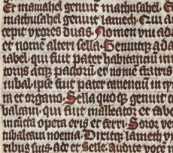 Et maviahel genuit mathusahel. Et
mathusahel genuit lamech. Qui ac
cepit uxores duas. Nomen uni ada
et nomē alteri sella. Genuitqȝ ada
iabel. qui fuit pater habitanciū in
toriis atqȝ pastorū. et nomē fratris
iubal. ipse fuit pater canenciū in
et organo. Sella quoqȝ genuit
balcain. qui fuit malleator et faber
cuncta opera eris et ferri. Soror vero
tubalcain noema. Dixitqȝ lamech ux
ribus suis ade et selle. Audite vocē